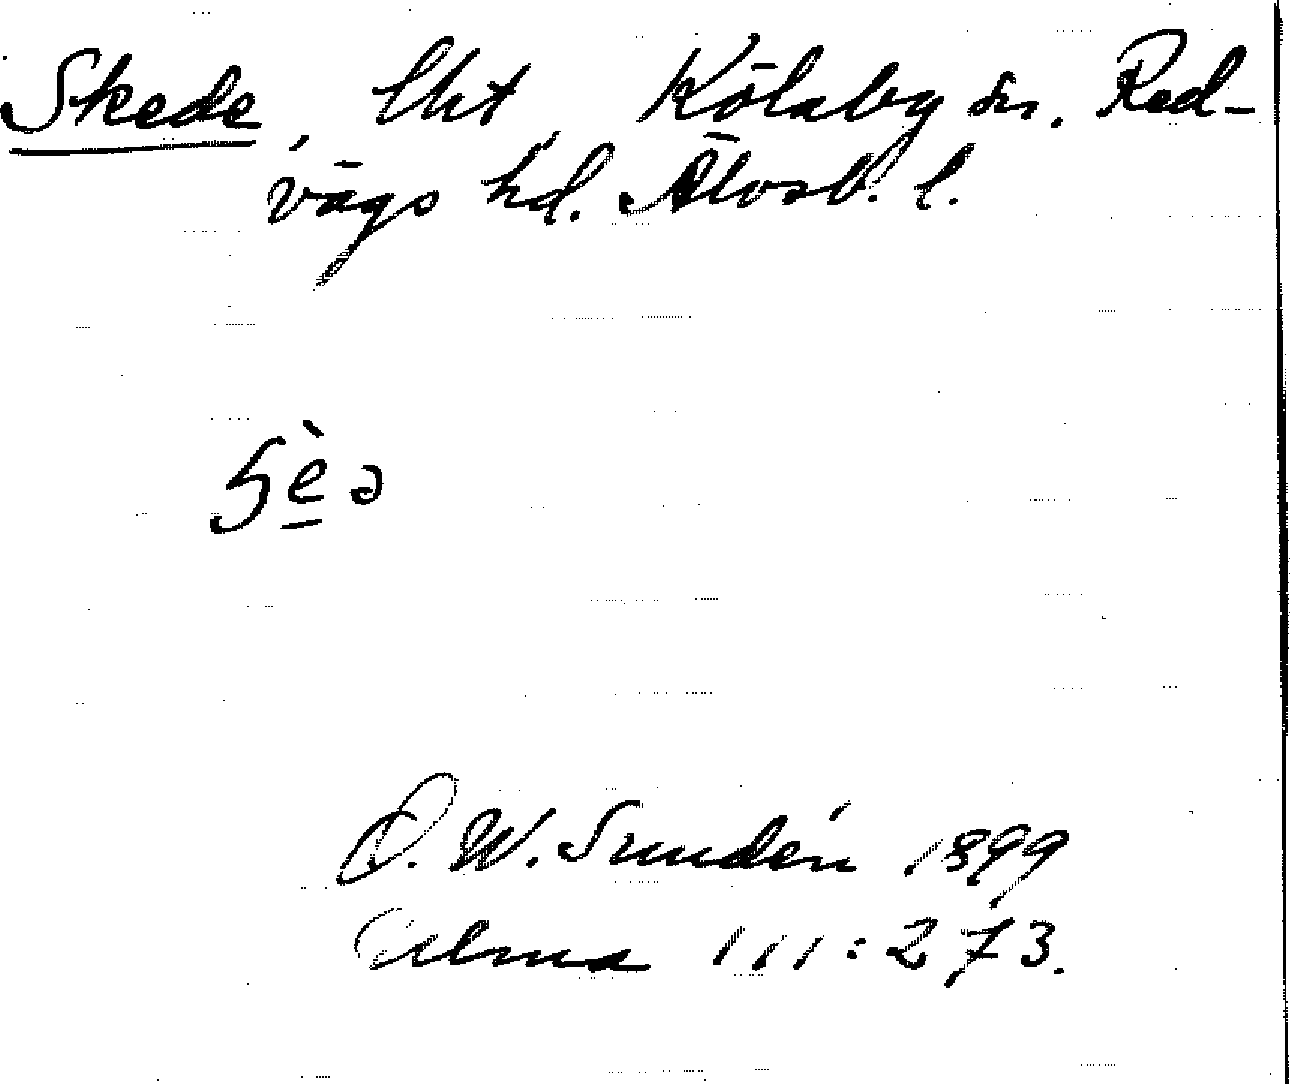 Skede, Uht, Kölaby sn. Red-
vägs hd. Älvsb. l.
D. W. Sundén 1899
111:273.